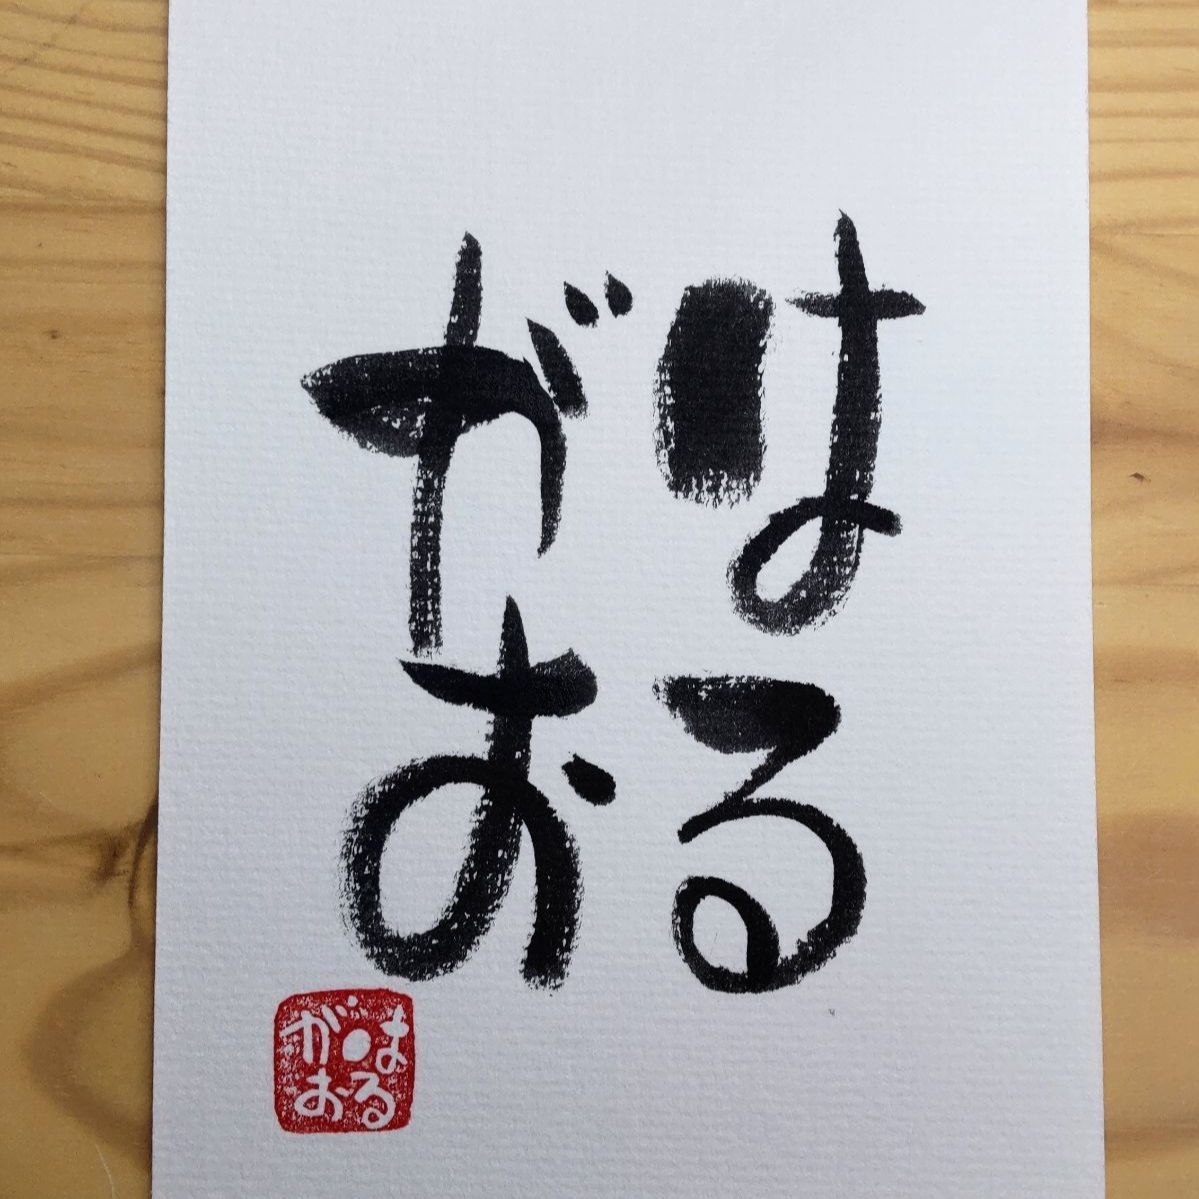 はる
がお
はる
がお